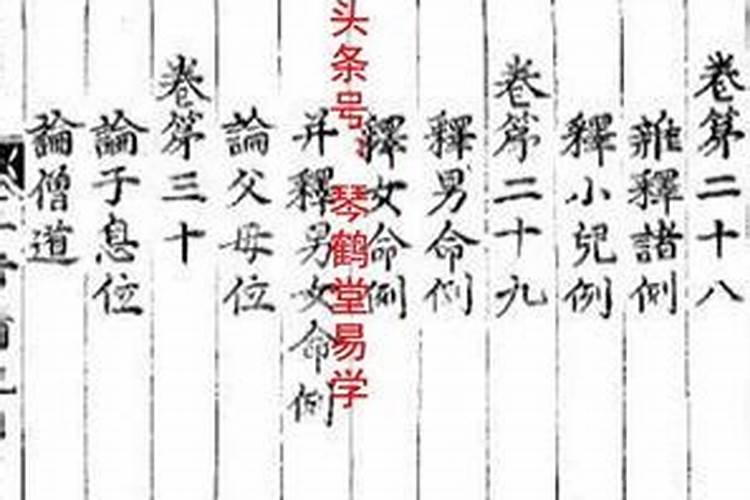 卷第二十八
雜釋諸例
釋小兒例
卷第二十九
釋男命例
釋女命例
并釋男女命例
論父母位
卷第三十
論子息位
論僧道
头条号：琴鹤堂易学